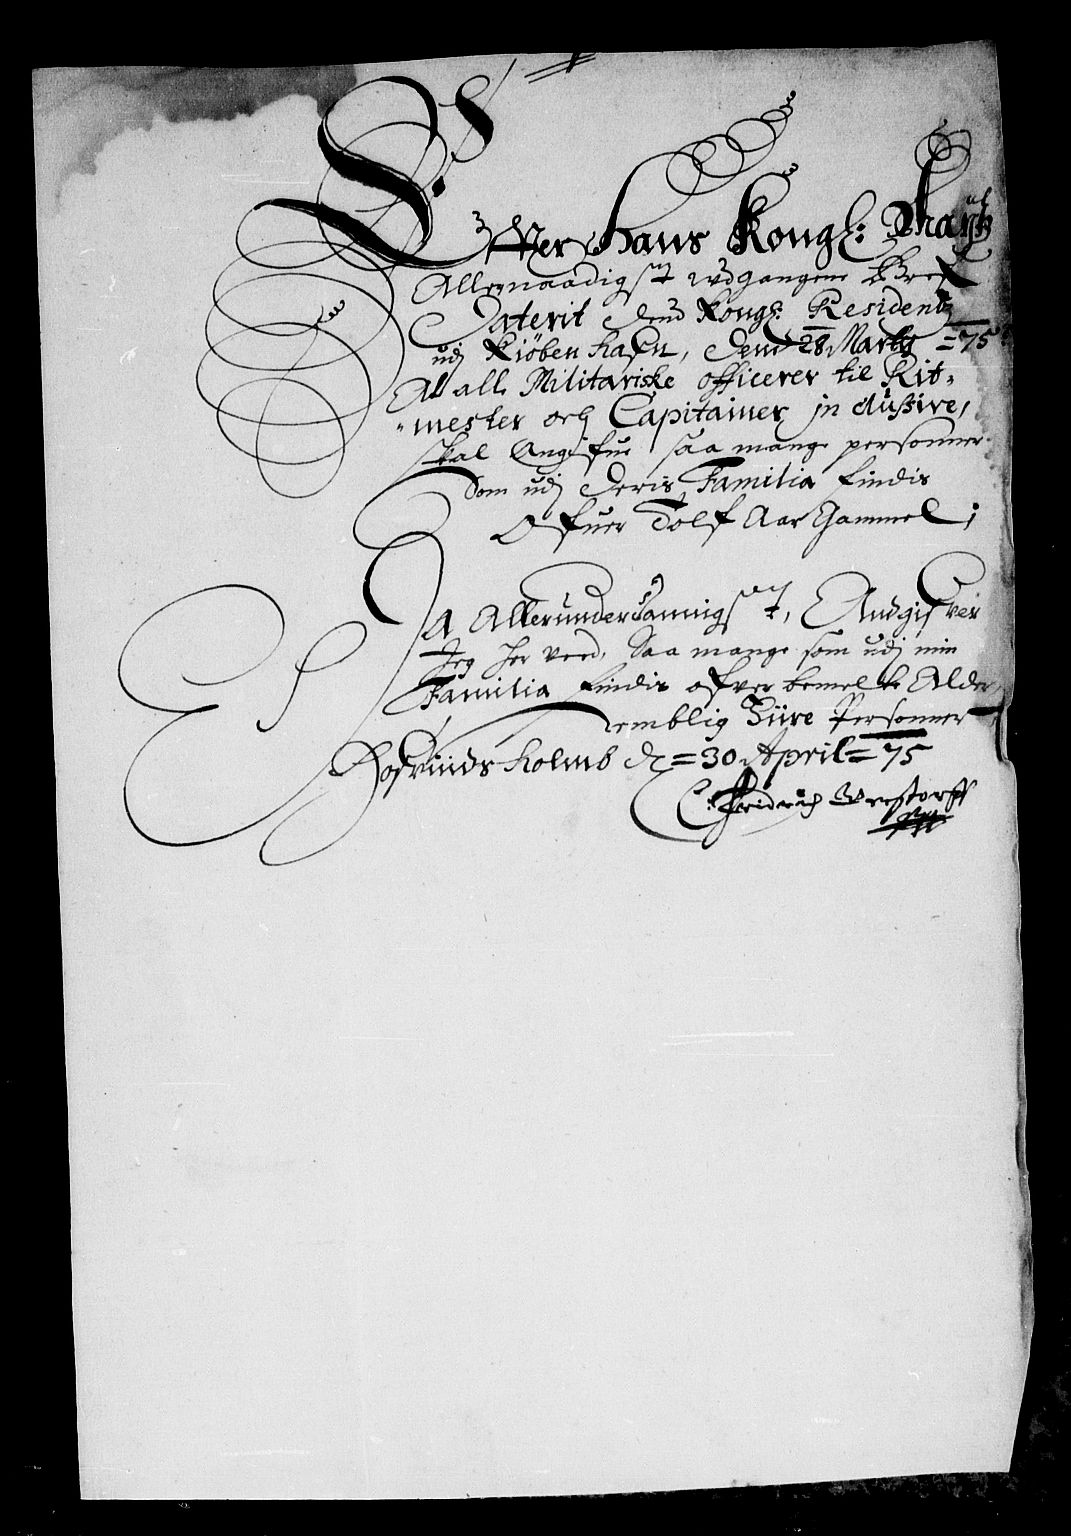 Effter Hans Kongl: Maytz
Allernaadigst udgangene Bref
Daterit dend Kongl: Residentz
udj Kiöbenhafn, dend 28 Marty =75
At alle Militariske officerer til Rit-
-mester och Capitainer inclusive,
skal Angifue saa mange personner
som udj deris Familia findis
Ofuer Tolf Aar Gammel;
Da Allerunderdannigst, Andgifver
Jeg her ved, Saa mange som udj min
Familia findis ofver bemelte Alder,
nemblig Fiire Personner
holmb dn =30 April= 75
Fridrich